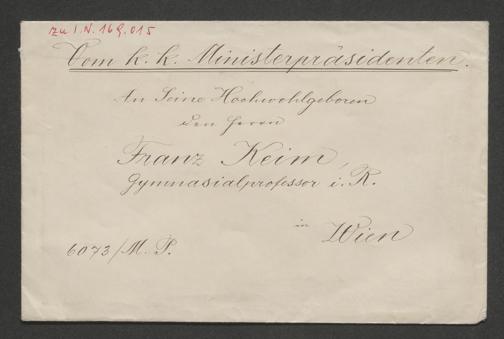 zu I.N. 169.015
Vom k. k. Ministerpräsidenten.
An Seine Hochwohlgeboren
den Herrn
Franz Keim,
Gymnasialprofessor i. R.
in Wien
6073/M. P.